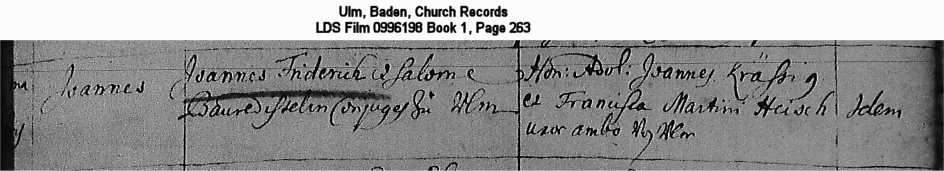 Ulm, Baden, Church Records
LDS Film 0996198 Book 1, Page 263
Joannes
Joannes Friderich et Salome
Conjuges zu Ulm
Hon: Adol: Joannes Kräßig
et Francisca Martini Heisch
uxor ambo Vo Ulm
Idem